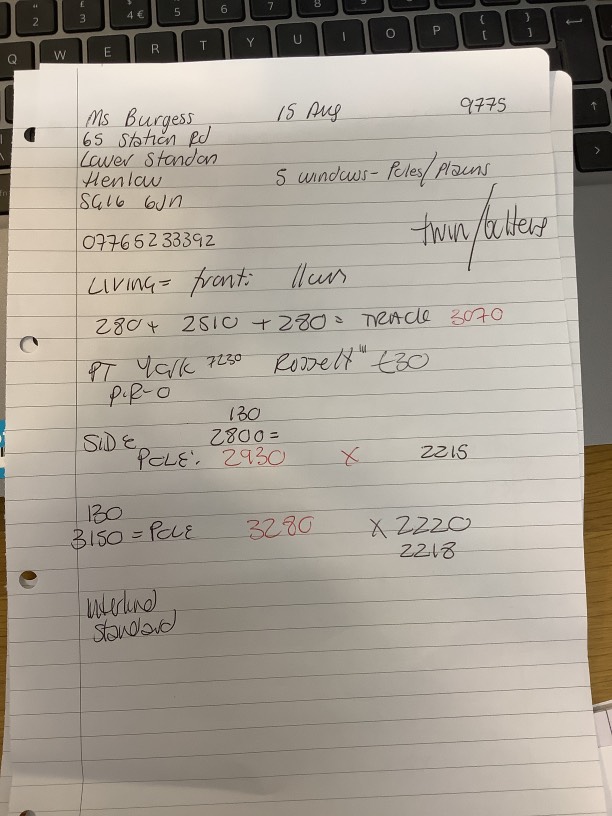 Ms Burgess 15 Aug 9775
65 Station Rd
Lower Stondon
Henlow 5 windows - Poles/Plains
SG16 6JN
twin/battens
07765233392
LIVING = front:
280 + 2510 + 280 = TRACK 3070
PT 7230 £30
P.R-O
130
SIDE 2800 =
POLE: 2930 X 2215
130
3150 = POLE 3280 X 2220
2218
Interlined
Standard